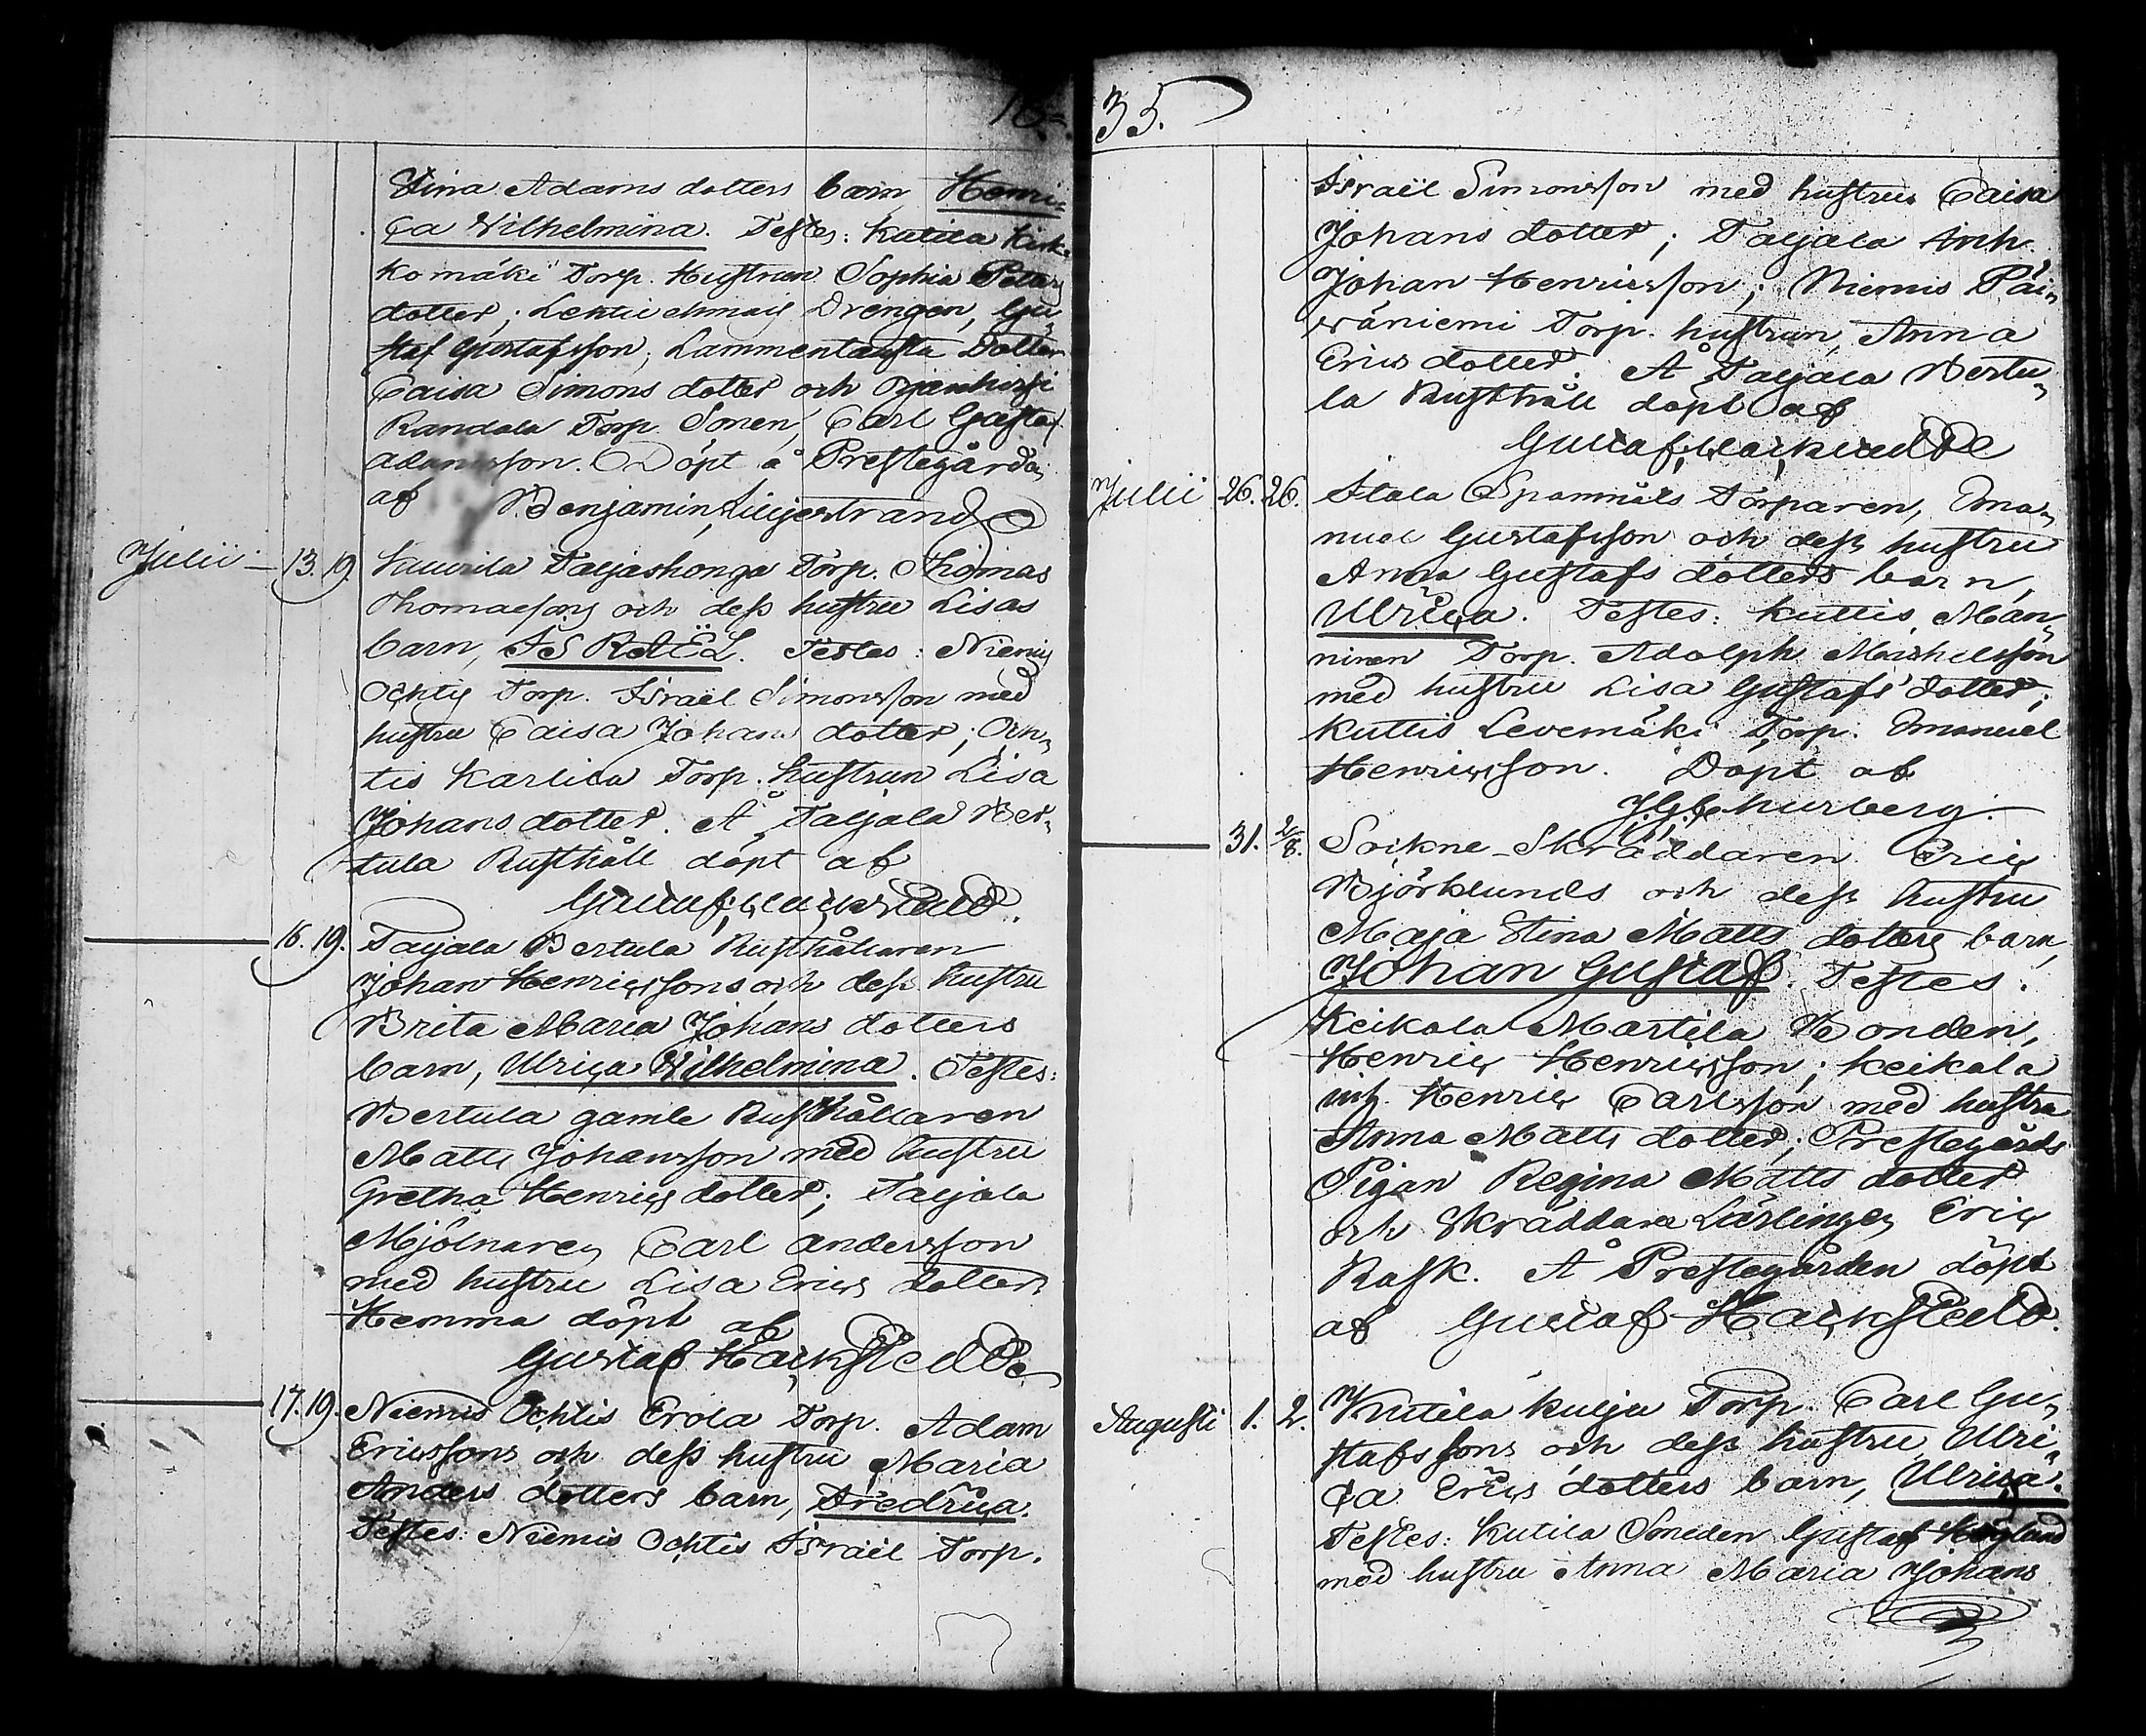 18=
Stina Adams dotters barn Henri=
ca Wilhelmina. Testes: Kutila Kirk=
komäki Torp. Hustrun Sophia Petters
dotter; Drengen, Gu=
staf Gustafsson; Lammentausta Dotter
Caisa Simons dotter och Ojanhirsi
Randala Torp. Sonen, Carl Gustaf
Adamsson. Döpt å Prestegården
af Benjamin Liljestrand
Julii — 13. 19. Kauvila Taljashonga Torp. Thomas
Thomassons och dess hustru Lisas
barn, ISRAËL. Testes: Niemis
Ochtis Torp. Israël Simonsson med
hustru Caisa Johans dotter; Och=
tis Karlila Torp. hustrun Lisa
Johans dotter. Å Taljala Ber=
tula Rusthåll döpt af
Gustaf Hacksted
16. 19. Taljala Bertula Rusthållaren
Johan Henricssons och dess hustru
Brita Maria Johans dotters
barn, Ulrica Wilhelmina. Testes:
Bertula gamle Rusthållaren
Matts Johansson med hustru
Gretha Henrics dotter; Taljala
Mjölnaren Carl Andersson
med hustru Lisa Erics dotter
Hemma döpt af
Gustaf Hacksted
17. 19. Niemis Ochtis Erola Torp. Adam
Ericssons och dess hustru Maria
Anders dotters barn, Fredrica.
Testes: Niemis Ochtis Israël Torp.
35.
Israël Simonsson med hustru Caisa
Johans dotter; Taljala Arrh.
Johan Henricsson; Niemis Päi=
väniemi Torp. hustrun, Anna
Erics dotter. Å Taljala Bertu=
la Rusthåll döpt af
Gustaf Hacksted
Julii 26. 26. Itala Spannäls Torparen, Ema=
nuel Gustafsson och dess hustru
Anna Gustafs dotters barn,
Ulrica. Testes: Kuttis, Män=
ninen Torp. Adolph Michelsson
med hustru Lisa Gustafs dotter;
Kuttis Levemäki Torp. Emanuel
Henricsson. Döpt af
J. G. Churberg.
31. 2/8. Sockne-Skräddaren Eric
Björklunds och dess hustru
Maja Stina Matts dotters barn,
Johan Gustaf. Testes:
Keikala Martila Bonden,
Henric Henricsson; Keikala
inh. Henric Carlsson med hustru
Anna Matts dotter; Prestegårds
Pigan Regina Matts dotter
och Skräddare Lärlingen Eric
Rask. Å Prestegården döpt
af Gustaf Hacksted.
Augusti 1. 2. Kutila Kulju Torp. Carl Gu=
stafssons och dess hustru Ulri=
ca Erics dotters barn, Ulrica.
Testes: Kutila Smeden Gustaf Höglund
med hustru Anna Maria Johans